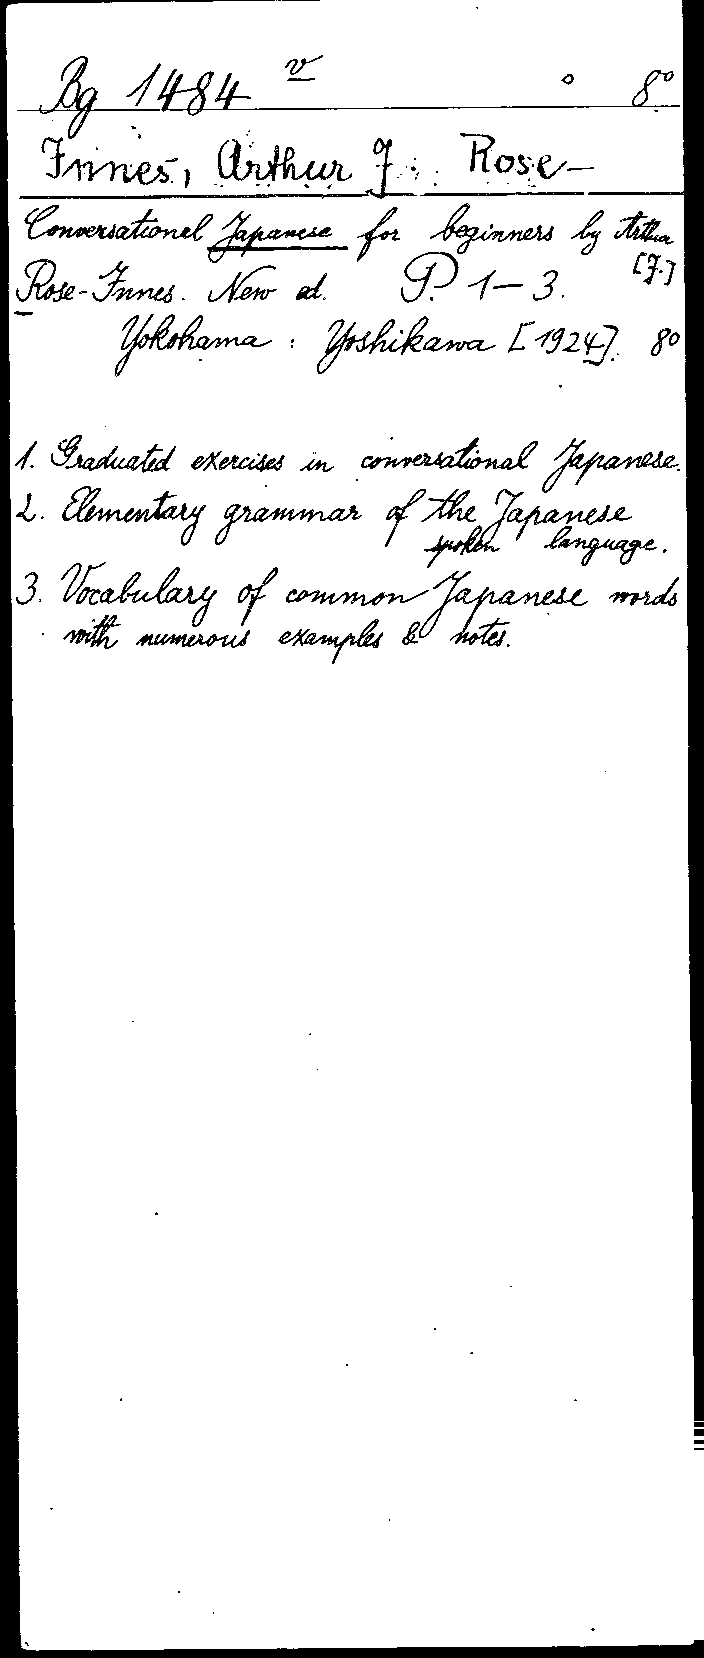 Bg 1484 v 8°
Innes, Arthur J. Rose-
Conversational Japanese for beginners by Arthur
[J.]
Rose-Innes. New ed. P. 1-3.
Yokohama: Yoshikawa [1924]. 8°
1. Graduated exercises in conversational Japanese.
2. Elementary grammar of the Japanese
spoken language.
3. Vocabulary of common Japanese words
with numerous examples & notes.